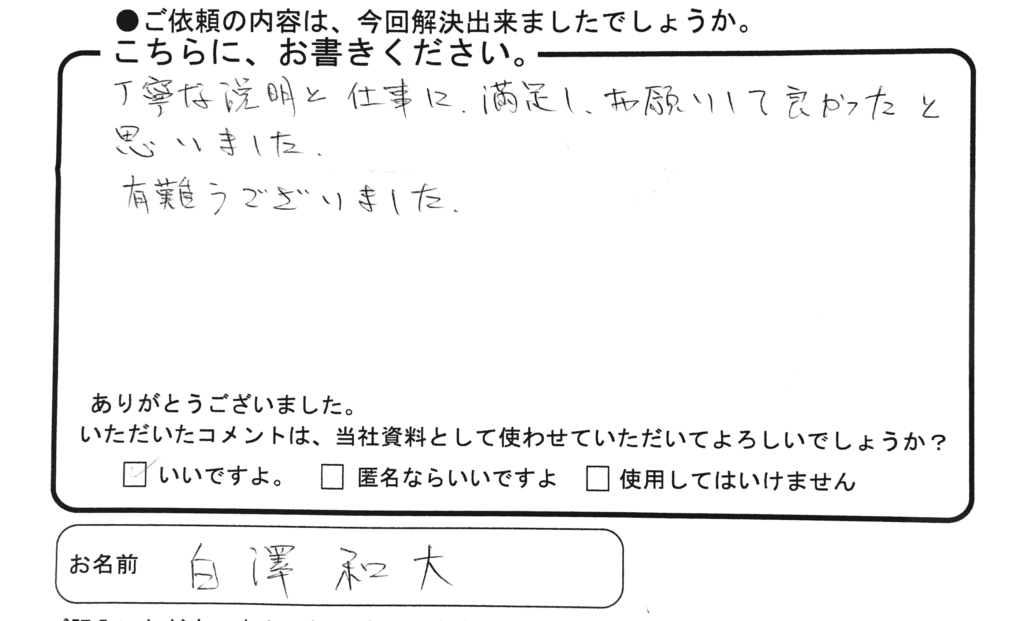 ●ご依頼の内容は、今回解決出来ましたでしょうか。
こちらに、お書きください。
丁寧な説明と仕事に、満足し、お願いして良かったと
思いました。
有難うございました。
ありがとうございました。
いただいたコメントは、当社資料として使わせていただいてよろしいでしょうか？
いいですよ。 匿名ならいいですよ 使用してはいけません
お名前 白澤 和大